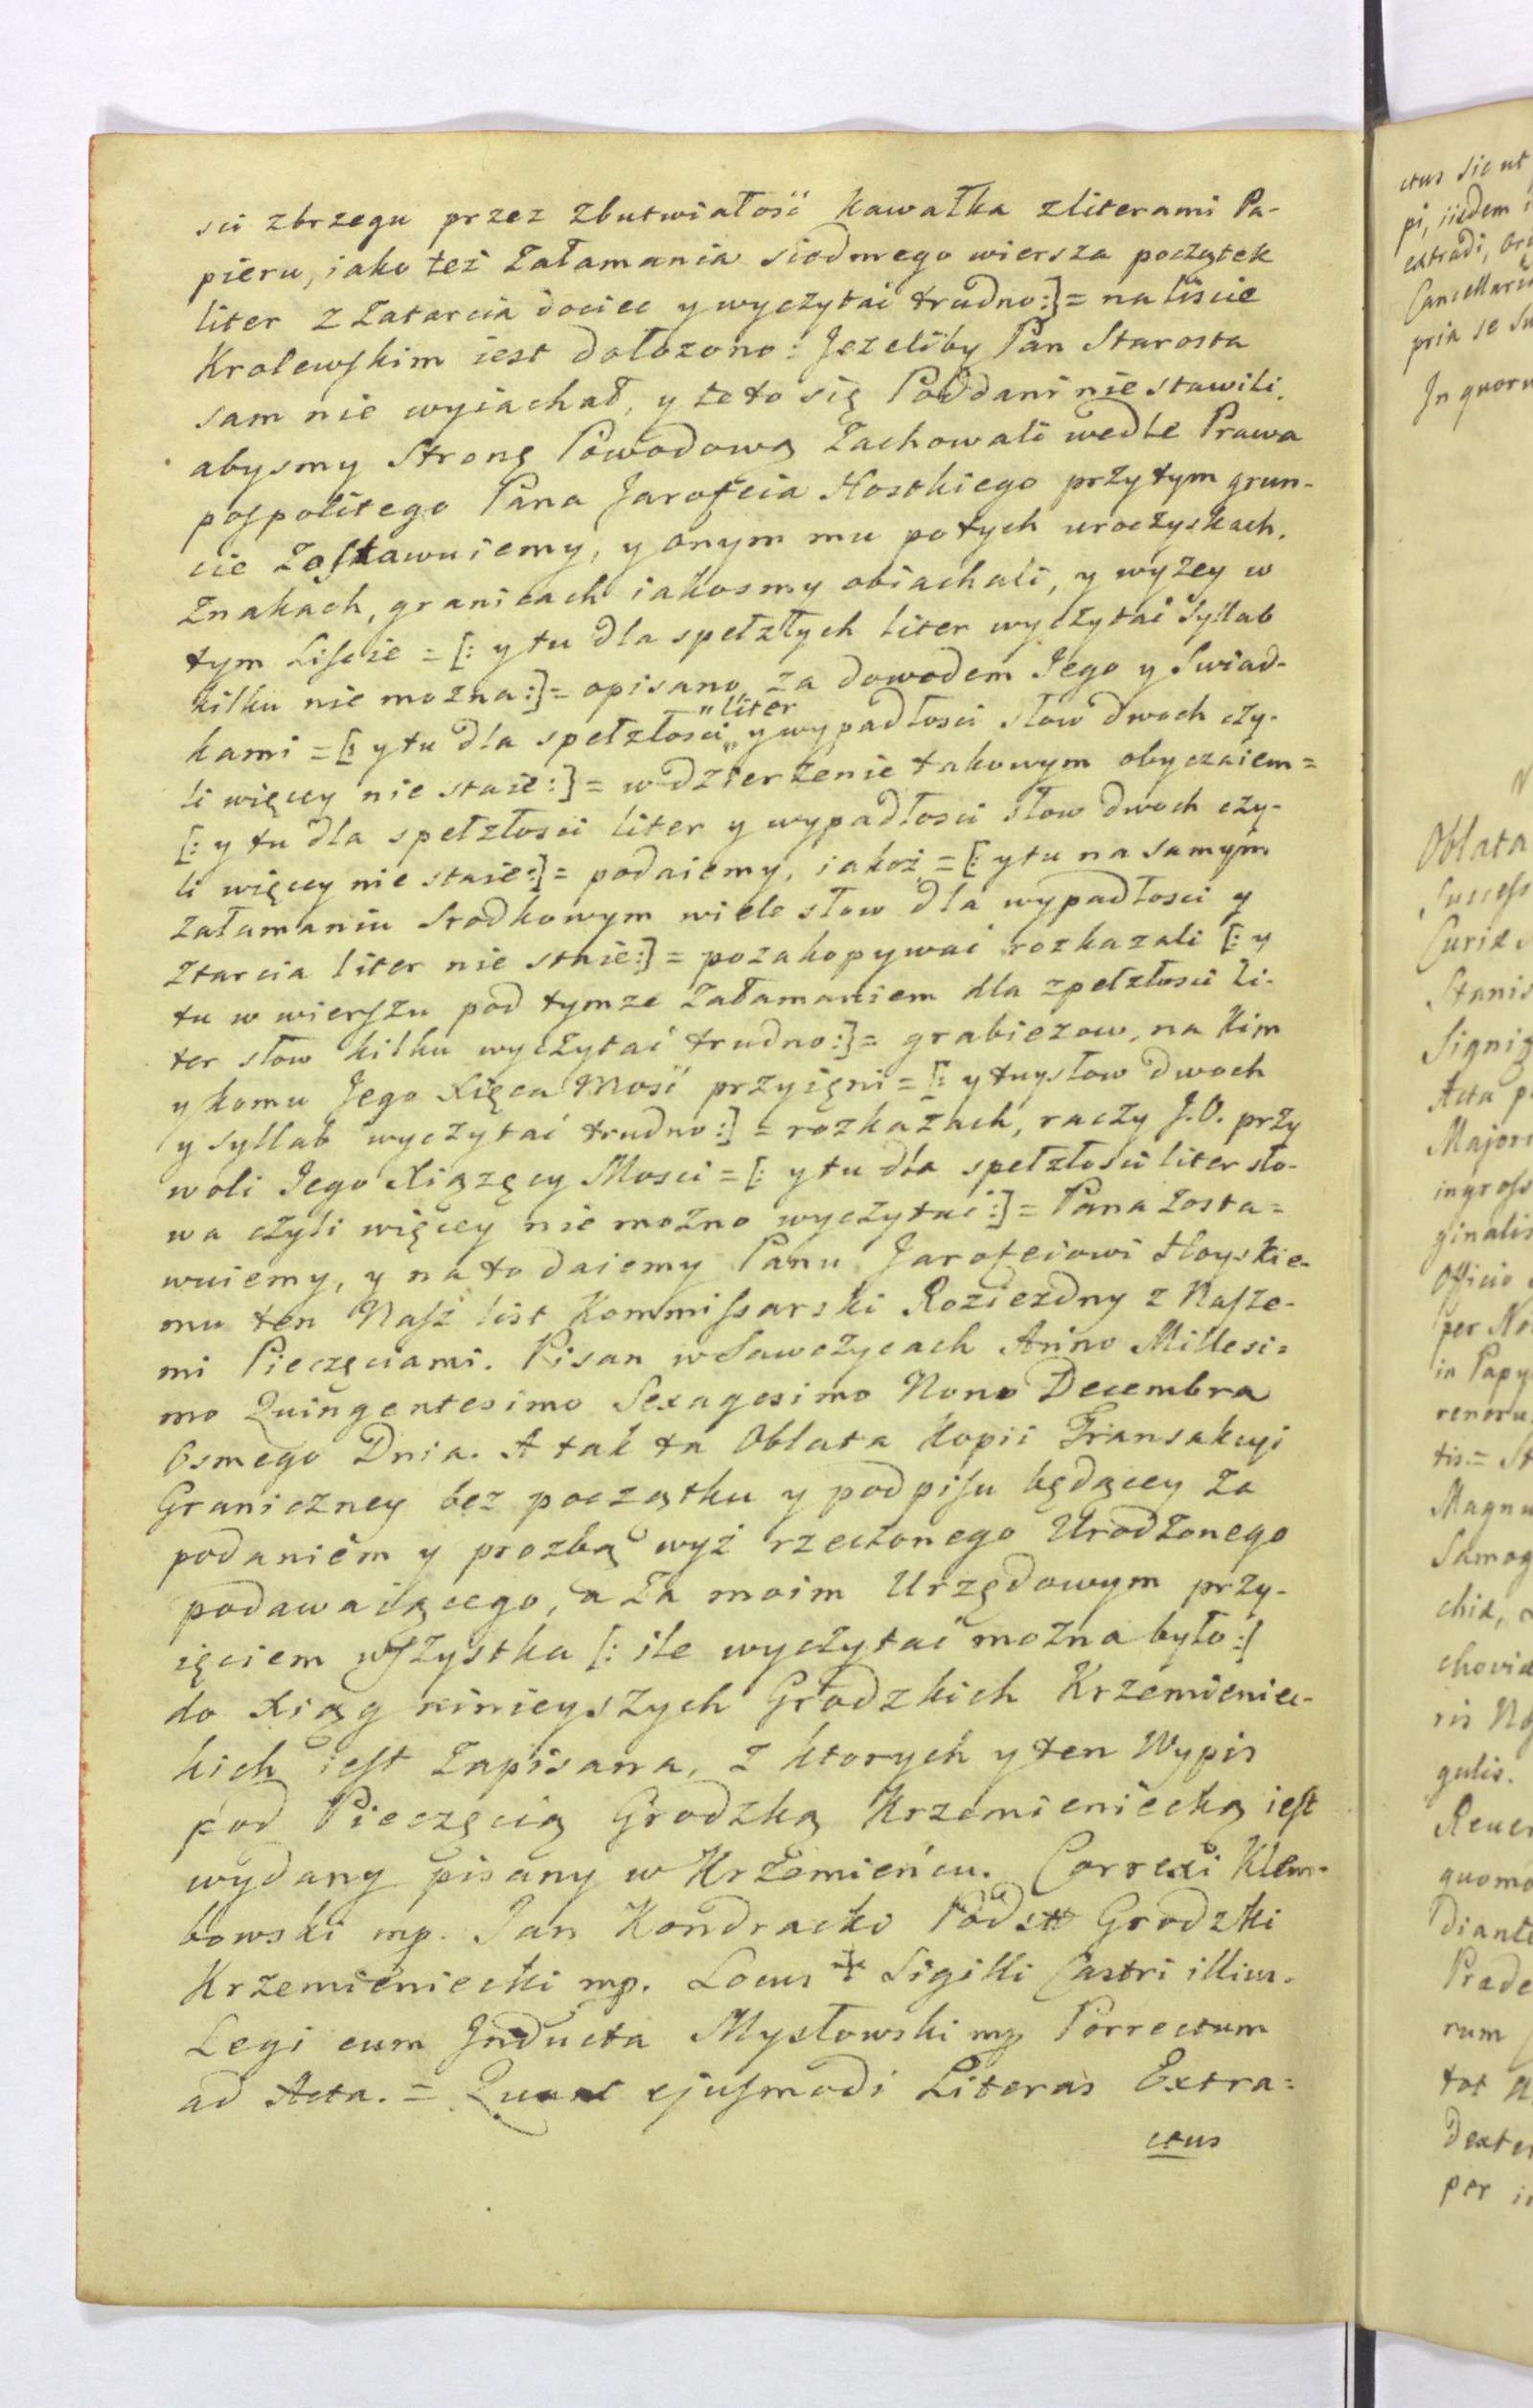 sci zbrzegu przez zbutwiałość kawałka zliterami Pa-
pieru, iako też załamania siodmego wiersza początek
liter z zatarcia dociec y wyczytać trudno:] = na liscie
Krolewskim iest dołozono: Jezeliby Pan Starosta
sam nie wyiachał, y te to się Poddani nie stawili.
abysmy Stronę Powodową zachowali wedle Prawa
pospolitego Pana Jarofeia Hostkiego przytym grun-
cie zostawuiemy, y onym mu potych uroczyskach,
znakach, granicach iakosmy obiachali, y wyzey w
tym Liscie = [: y tu dla spełzłych liter wyczytać Syllab
kilku nie mozna:] = opisano, za dowodem Jego y Swiad-
kami = [: y tu dla spełzłosci „liter„ y wypadłosci słow dwoch czy-
li więcey nie staie:] = w dzierzenie takowym obyczaiem =
[: y tu dla spełzłosci liter y wypadłosci słow dwoch czy-
li więcey nie staie:] = podaiemy, iakoż = [: y tu na samym
załamaniu Srodkowym wiele słow dla wypadłosci y
ztarcia liter nie staie:] = pozakopywać rozkazali [: y
tu w wierszu pod tymze załamaniem dla zpełzłosci li-
ter słow kilku wyczytać trudno:] = grabiezow, na kim
y komu Jego Xięca Mość przyięni = [: y tuy słow dwoch
y syllab wyczytać trudno:] = rozkazach, raczy J.O. przy
woli Jego Xiązęcy Mosci = [: y tu dla spełzłosci liter sło-
wa czyli więcey nie możno wyczytać:] = Pana zosta=
wuiemy, y na to daiemy Panu Jarofeiowi Hoyskie-
mu ten Nasz list Kommissarski Rozieżdny z Nasze-
mi Pieczęciami. Pisan w Sawczycach Anno Millesi=
mo Quingentesimo Sexagesimo Nono Decembra
Osmego Dnia. A tak ta Oblata Kopii Transakcyi
Graniczney bez początku y podpisu będącey za
podaniem y prozbą wyż rzeczonego Urodzonego
podawaiącego, a za moim Urzędowym przy-
ięciem wszystka [: ile wyczytać mozna było:]
do Xiąg ninieyszych Grodzkich Krzemieniec-
kich iest zapisana, z ktorych y ten Wypis
pod Pieczęcią Grodzką Krzemieniecką iest
wydany pisany w Krzemieńcu. Correxi Klem-
bowski mp. Jan Kondracki Podstt Grodzki
Krzemieniecki mp. Locus Sigilli Castri illius.
Legi cum Inducta Mysłowski mp Porrectum
ad Acta. = Quarum ejusmodi Literas Extra=
ctus
ctus Sicut
pi, iidem
extradi,
pria se
In quoru
Oblata
Stanis
Acta p
Majori
ingross
ginalis
Officio
per No
in Papy
Magnu
Samog
chiæ,
chovia
gulis.
quomo
Diante
Præde
rum
tot
Dexter
per